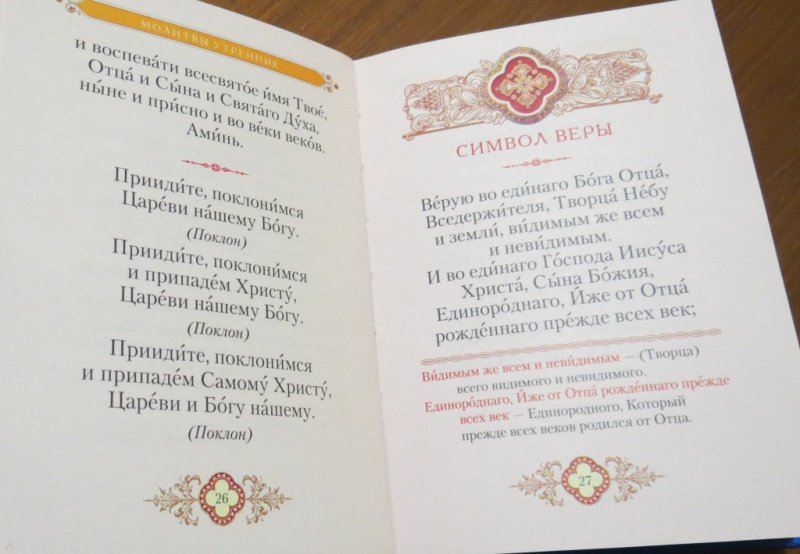 МОЛИТВЫ УТРЕННИЕ
и воспева́ти всесвято́е и́мя Твое́,
Отца́ и Сы́на и Свята́го Ду́ха,
ны́не и при́сно и во ве́ки веко́в.
Ами́нь.
Прииди́те, поклони́мся
Царе́ви на́шему Бо́гу.
(Поклон)
Прииди́те, поклони́мся
и припаде́м Христу́,
Царе́ви на́шему Бо́гу.
(Поклон)
Прииди́те, поклони́мся
и припаде́м Самому́ Христу́,
Царе́ви и Бо́гу на́шему.
(Поклон)
26
СИМВОЛ ВЕРЫ
Ве́рую во еди́наго Бо́га Отца́,
Вседержи́теля, Творца́ Не́бу
и земли́, ви́димым же всем
и неви́димым.
И во еди́наго Го́спода Иису́са
Христа́, Сы́на Бо́жия,
Единоро́днаго, И́же от Отца́
рожде́ннаго пре́жде всех век;
Ви́димым же всем и неви́димым — (Творца)
всего видимого и невидимого.
Единоро́днаго, И́же от Отца́ рожде́ннаго пре́жде
всех век — Единородного, Который
прежде всех веков родился от Отца.
27